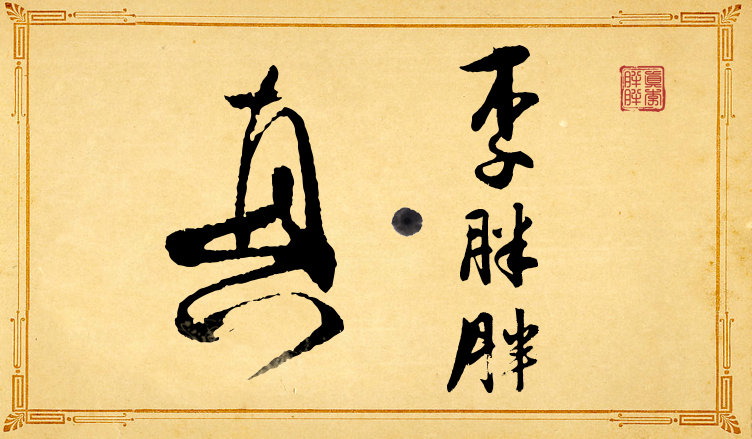 真·
李胖胖
真李
胖胖